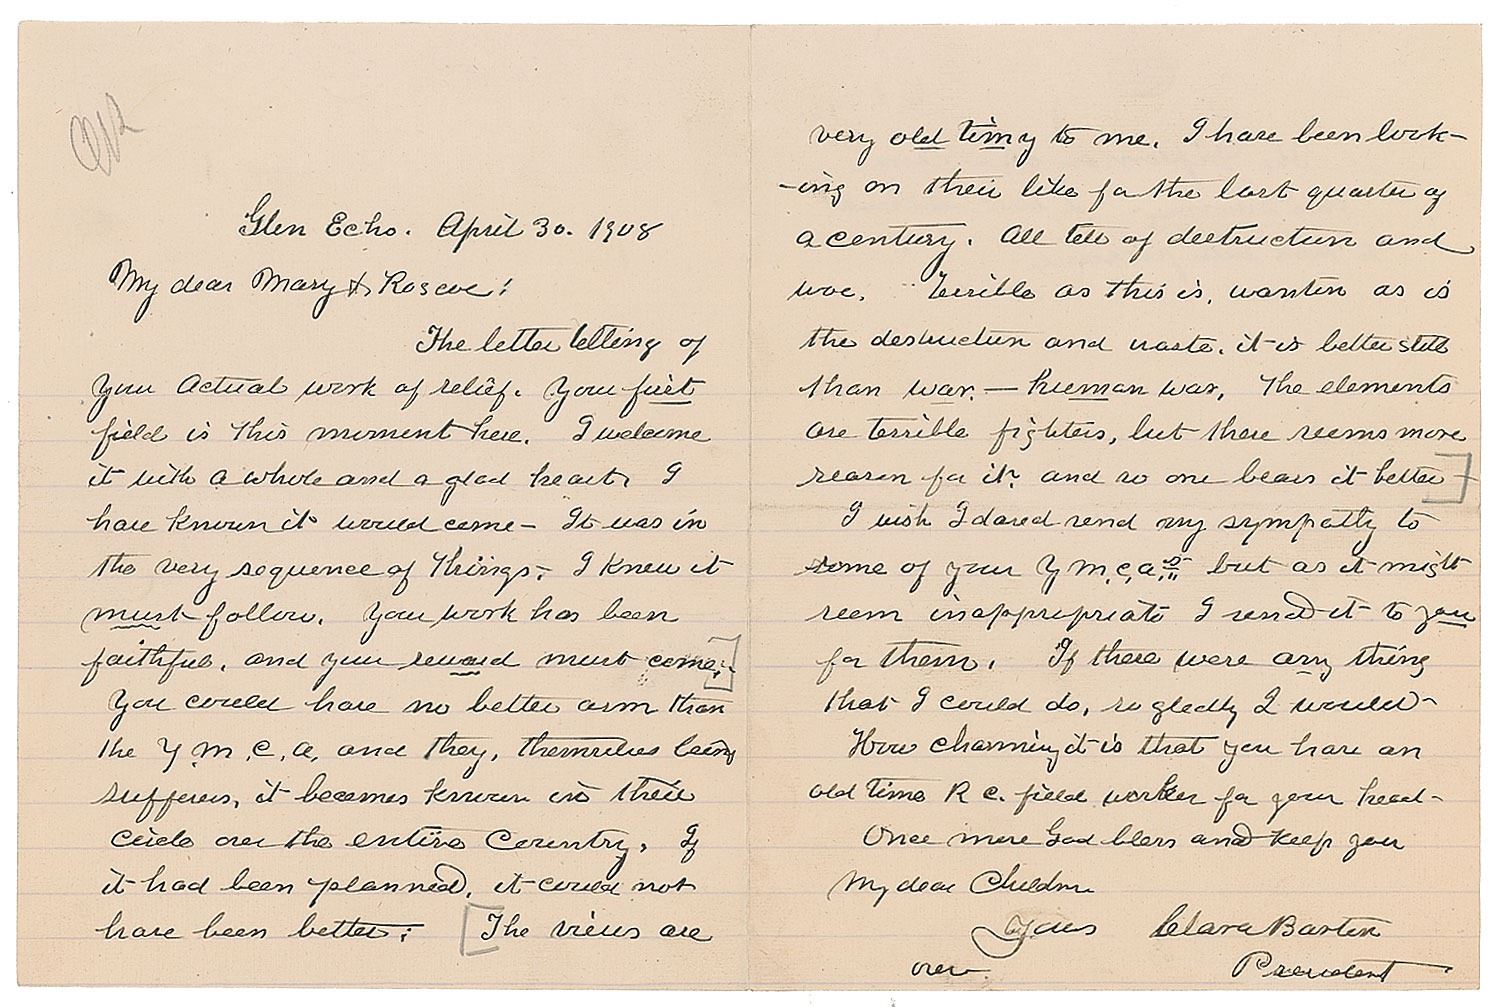 Glen Echo. April 30. 1908
My dear Mary & Roscoe:
The letter telling of
your actual work of relief. Your first
field is this moment here. I welcome
it with a whole and a glad heart. I
have known it would come – It was in
the very sequence of things, I knew it
must follow. Your work has been
faithful, and your reward must come.]
You could have no better arm than
the Y.M.C.A. and they, themselves being
sufferers, it becomes known in their
circle over the entire Country. If
it had been planned, it could not
have been better: [The views are
very old timy to me. I have been look-
-ing on their like for the last quarter of
a century. All tell of destruction and
woe. Terrible as this is, wanton as is
the destruction and waste, it is better still
than war. — human war. The elements
are terrible fighters, but there seems more
reason for it, and so one bears it better]
I wish I dared send my sympathy to
some of your Y.M.C.A.s but as it might
seem inappropriate I send it to you
for them. If there were any thing
that I could do, so gledly I would –
How charming it is that you have an
old time R c. field worker for your head –
Once more God bless and keep you
My dear Children
Yours Clara Barton
over. President